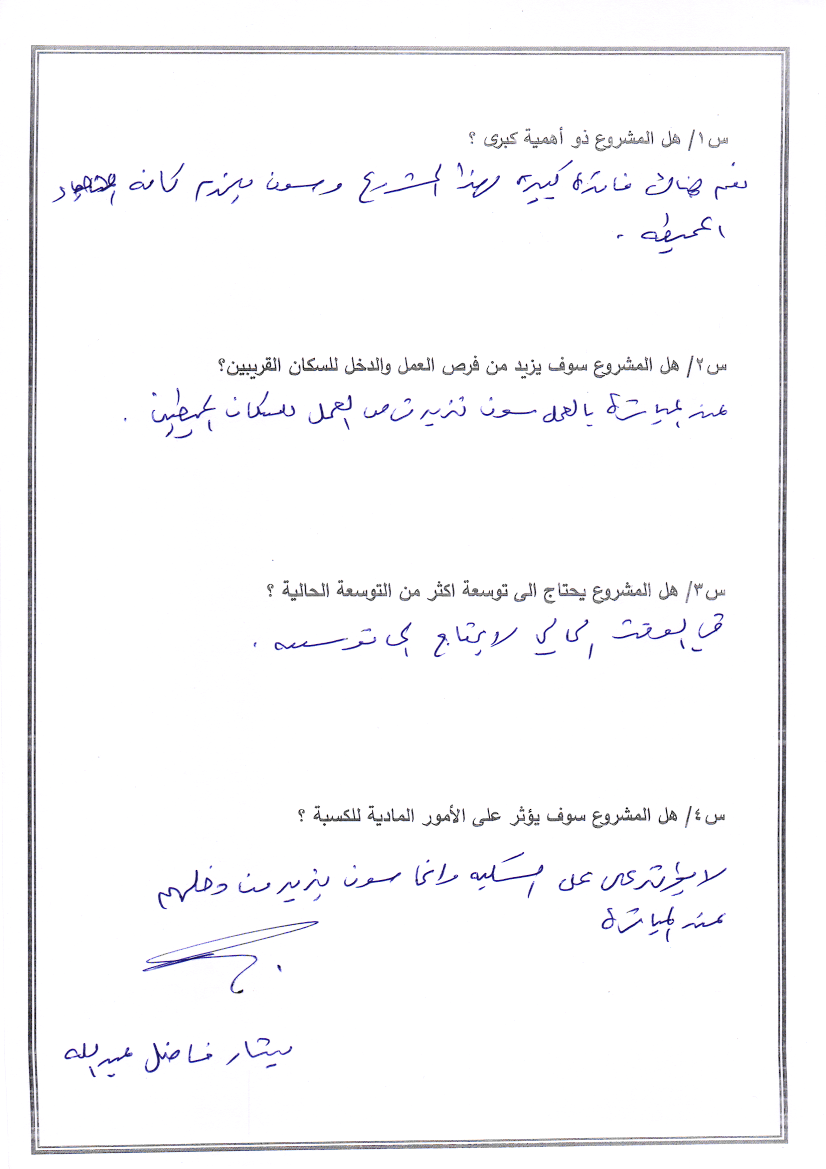 س١/ هل المشروع ذو أهمية كبرى ؟
نعم هناك فائدة كبيرة لهذا المشروع وسوف يخدم كافة
المحيطه .
س٢/ هل المشروع سوف يزيد من فرص العمل والدخل للسكان القريبين؟
عند المباشرة بالعمل سوف تزيد فرص العمل للسكان المحيطين .
س٣/ هل المشروع يحتاج الى توسعة اكثر من التوسعة الحالية ؟
في الوقت الحالي لا يحتاج الى توسعه .
س٤/ هل المشروع سوف يؤثر على الأمور المادية للكسبة ؟
لا يؤثر على وانما سوف يزيد من دخلهم
عند المباشرة
فاضل عبدالله